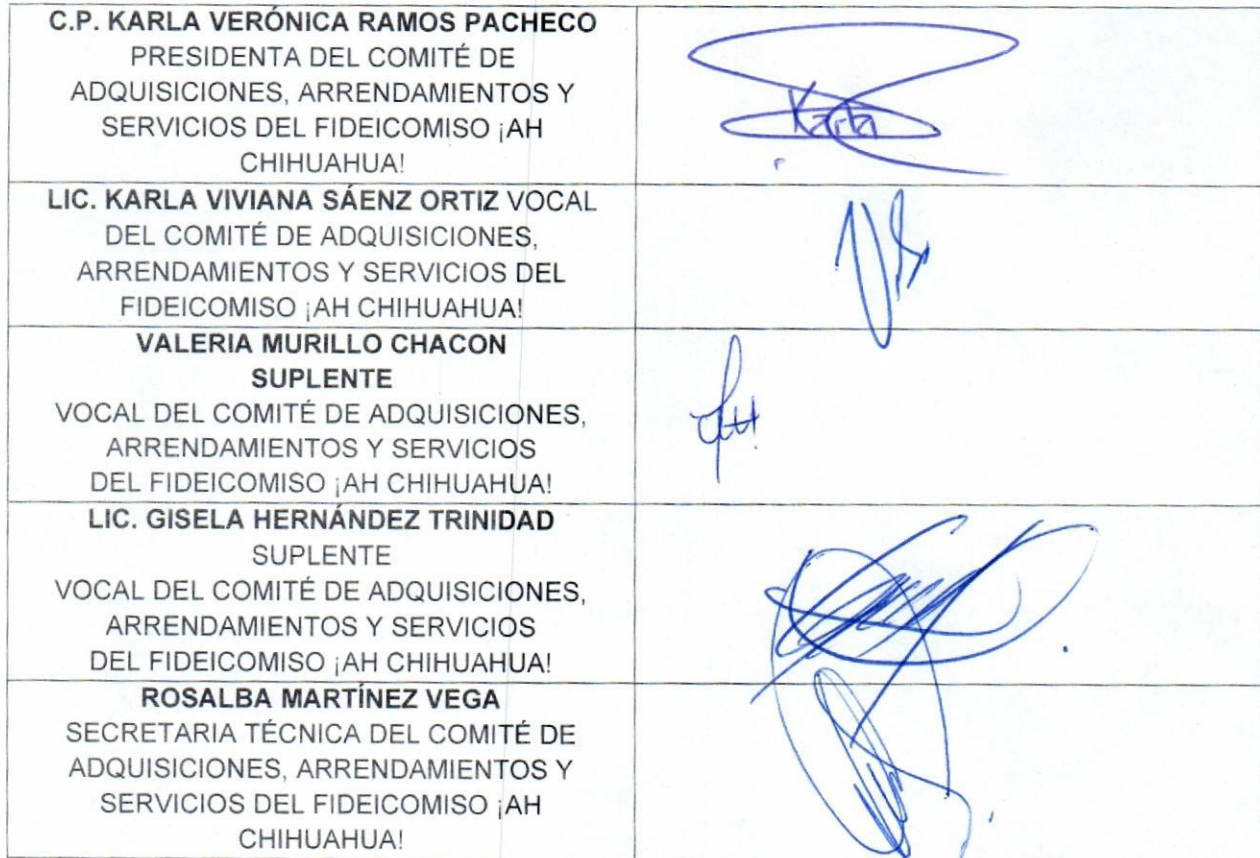 C.P. KARLA VERÓNICA RAMOS PACHECO
PRESIDENTA DEL COMITÉ DE
ADQUISICIONES, ARRENDAMIENTOS Y
SERVICIOS DEL FIDEICOMISO ¡AH
CHIHUAHUA!
Karla
LIC. KARLA VIVIANA SÁENZ ORTIZ VOCAL
DEL COMITÉ DE ADQUISICIONES,
ARRENDAMIENTOS Y SERVICIOS DEL
FIDEICOMISO ¡AH CHIHUAHUA!
VALERIA MURILLO CHACON
SUPLENTE
VOCAL DEL COMITÉ DE ADQUISICIONES,
ARRENDAMIENTOS Y SERVICIOS
DEL FIDEICOMISO ¡AH CHIHUAHUA!
LIC. GISELA HERNÁNDEZ TRINIDAD
SUPLENTE
VOCAL DEL COMITÉ DE ADQUISICIONES,
ARRENDAMIENTOS Y SERVICIOS
DEL FIDEICOMISO ¡AH CHIHUAHUA!
ROSALBA MARTÍNEZ VEGA
SECRETARIA TÉCNICA DEL COMITÉ DE
ADQUISICIONES, ARRENDAMIENTOS Y
SERVICIOS DEL FIDEICOMISO ¡AH
CHIHUAHUA!